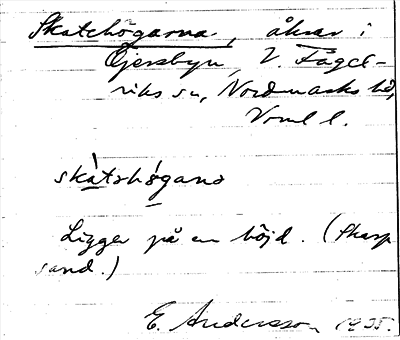 Skatehögarna, åkrar i
Öjersbyn, V. Fågel-
viks sn, Nordmarks hd,
Vrml l.
skàtshögana
Ligger på en höjd. (Skarp
sand.)
E. Andersson 1935.